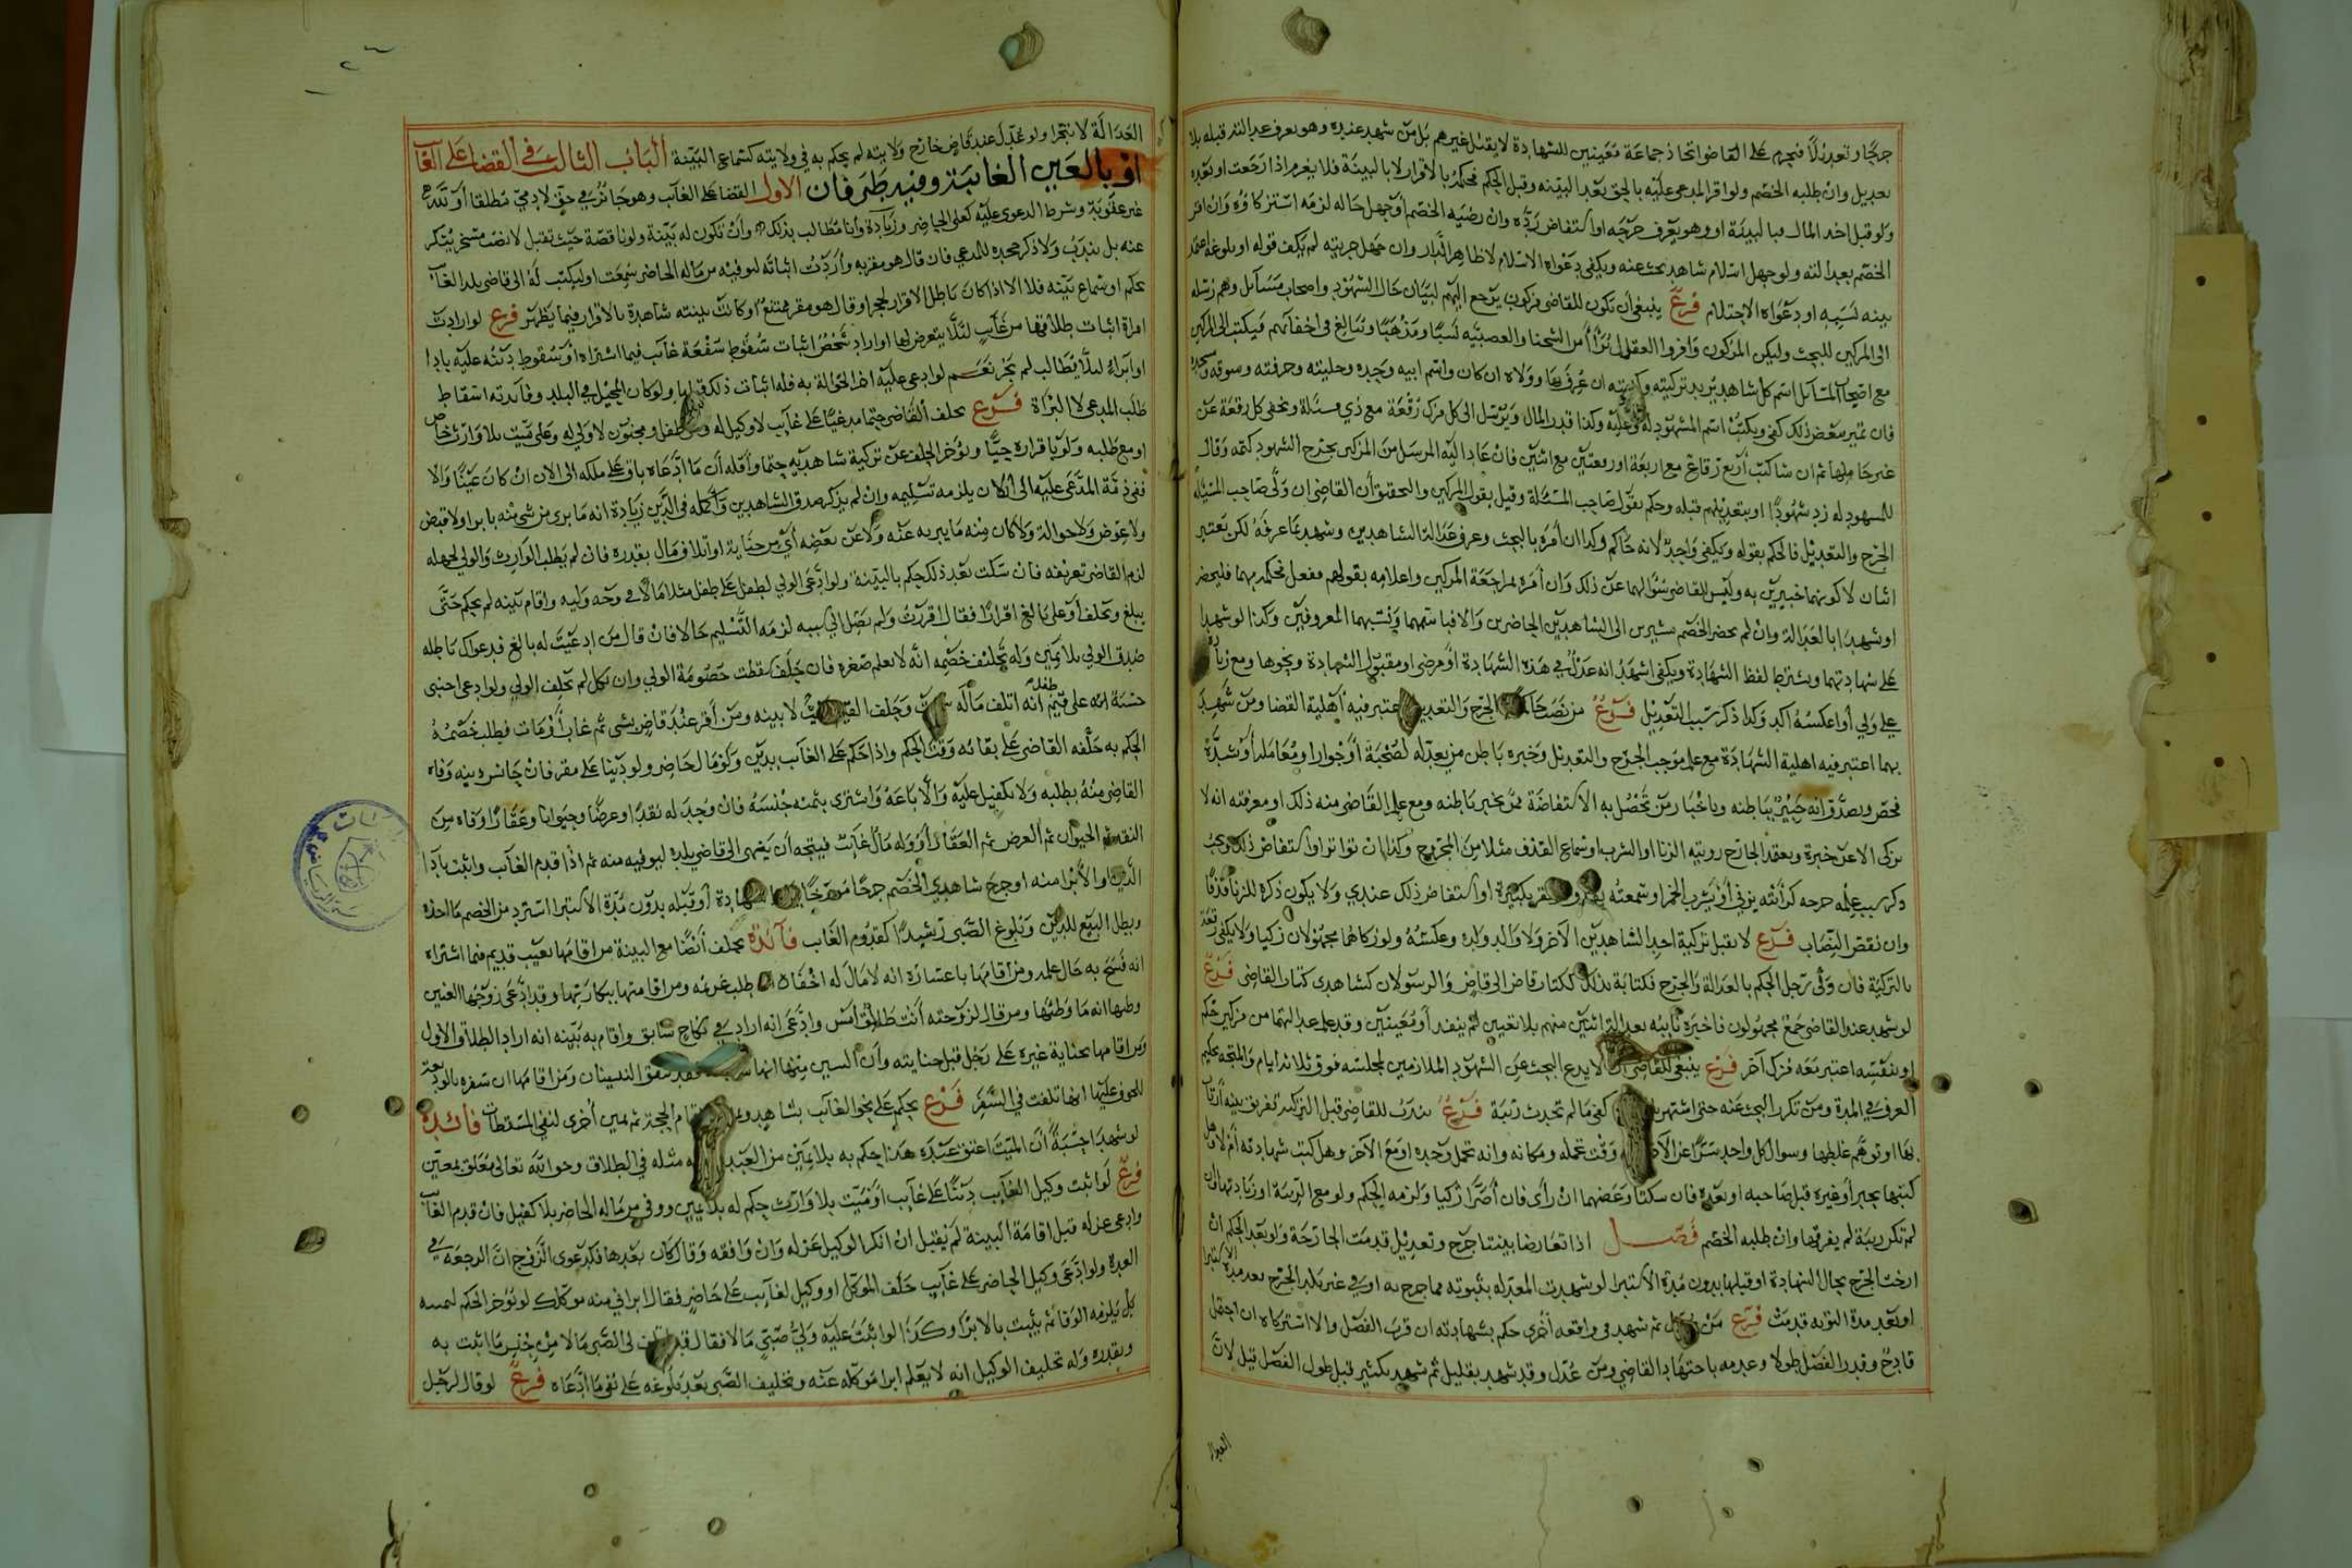 جرحًا وتعديلًا فيحرم على القاضي اتخاذ جماعة معينين للشهادة لا يقبل غيرهم بل من شهد عنده وهو يعرف عدالته قبله بلا
تعديل وان طلبه الخصم ولو اقر المدعى عليه بالحق بعد البينة وقبل الحكم فحكمه بالاقرار لا بالبينة فلا يغرم اذا رجعت او بعده
ولو قبل اخذ المال فبالبينة او وهو يعرف جرحه او استفاض رده وان رضيه الخصم او جهل حاله لزمه استزكاؤه وان اقر
الخصم بعدالته ولو جهل اسلام شاهد بحث عنه ويكفي دعواه الاسلام لا ظاهر الدار وان جهل حريته لم يكف قوله او بلوغه اعتمد
بينه لنسبه او دعواه الاحتلام فرع ينبغي ان تكون للقاضي مزكون يرجع اليهم لبيان حال الشهود واصحاب مسائل وهم رسله
الى المزكين للبحث وليكن المزكون وافروا العقل براء من الشحنا والعصبية نسبًا ومذهبًا وتبالغ في اخفائهم فيكتب الى المزكين
مع اصحاب المسائل اسم كل شاهد يريد تزكيته وكنيته ان عرف بها وولاه ان كان واسم ابيه وجده وحليته وحرفته وسوقه ومسجده
فان تميز ببعض ذلك كفى ويكتب اسم المشهود له وعليه وكذا قدر المال ويرسل الى كل مزك رقعة مع ذي مسئلة ويخفي كل رقعة عن
غير حاملها ثم ان شا كتب اربع رقاع مع اربعة او رقعتين مع اثنين فان عاد اليه المرسل من المزكين بجرح الشهود كتمه وقال
للمشهود له زد شهودًا او بتعديلهم قبله وحكم بقول صاحب المسئلة وقيل بقول المزكين والتحقيق أن القاضي ان ولى صاحب المسئلة
الجرح والتعديل فالحكم بقوله ويكفي واحد لانه حاكم وكذا ان امره بالبحث وعرف عدالة الشاهدين وشهد بما عرفه لكن يعتبر
اثنان لا كونهما خبيرين به وليس للقاضي سؤالهما عن ذلك وان أمره بمراجعة المزكين واعلامه بقولهم ففعل فحكمه بهما فليحضر
او شهدا بالعدالة وان لم يحضر الخصم مشيرين الى الشاهدين الحاضرين والا فباسمهما ونسبهما المعروفين وكذا لو شهدا
على شهادتهما ويشترط لفظ الشهادة ويكفي اشهد انه عدل في هذه الشهادة او مرضي او مقبول الشهادة ونحوها ومع زيادة
علي ولي أو عكسه اكد وكذا ذكر سبب التعديل فرع من نصب الجرح والتعديل اعتبر فيه أهلية القضا ومن شهد
بهما اعتبر فيه اهلية الشهادة مع علم موجب الجرح والتعديل وخبره باطن من يعدله لصحبة أو جوار او معاملة أو شدة
فحص ويصدق انه خبير بباطنه وباخبار من تحصل به الاستفاضة ممن يخبر باطنه ومع علم القاضي منه ذلك او معرفته انه لا
يزكى الا عن خبرة ويعتمد الجارح رويته الزنا او الشرب او سماع القذف مثلا من المجروح وكذا ان تواتر او استفاض ذلك ويجب
ذكر سبب علمه جرحه كرأيته يزني أو يشرب الخمر او سمعته او استفاض ذلك عندي ولا يكون ذكره للزنا قذفًا
وان نقص النصاب فرع لا يقبل تزكية احد الشاهدين الآخر ولا والد ولده وعكسه ولو زكاهما مجهولان زكيا ولا يكفي رقعة
بالتزكية فان ولى رجل الحكم بالعدالة والجرح فكتابة بذلك ككتاب قاض الى قاض والرسولان كشاهدي كتاب القاضي فرع
لو شهد عند القاضي جمع مجهولون فاخبره نايبه بعدالة اثنين منهم بلا تعيين لم ينفد أو بمعينين وقد علم عدالتهما من مزكين حكم
او بنفسه اعتبر معه مزك آخر فرع ينبغي للقاضي ان لا يدع البحث عن الشهود الملازمين لمجلسه فوق ثلاثة ايام والمتجه تحكيم
العرف في المدة ومن تكرر البحث عنه حتى اشتهر كفى ما لم تحدث ريبة فرع يندب للقاضي قبل التزكية تفريق بينة ارتاب
بها او توهم غلطها وسوال كل واحد سرًا عن الآخر وقت تحمله ومكانه وانه تحمل وحده او مع الآخر وهل كتب شهادته أم لا وهل
كتبها بحبر أو غيره قبل صاحبه او بعده فان سكتا وعظهما ان رأى فان أصرّا زكيا ولزمه الحكم ولو مع الريبة او زيادتها ان
لم تكن ريبة لم يفرقها وان طلبه الخصم فصل اذا تعارضا بينتا جرح وتعديل قدمت الجارحة ولو بعد الحكم ان
ارخت الجرح بحال الشهادة او قبلها بدون مدة الاستبرا لو شهدت المعدله بثبوته مما جرح به او في غير بلد الجرح بعد مدة الاستبرا
او بعد مدة التوبه قدمت فرع من عدل ثم شهد في واقعه أخرى حكم بشهادته ان قرب الفصل والا استزكاه ان احتمل
قادح وقدر الفصل طولا وعدمه باجتهاد القاضي ومن عدل وقد شهد بقليل ثم شهد بكثير قبل طول الفصل قبل لان
العدالة
العدالة لا تتجزا ولو عدل عند قاض خارج ولايته لم يحكم به في ولايته كسماع البينة الباب الثالث في القضا على الغايب
او بالعين الغائبة وفيه طرفان الاول القضا على الغائب وهو جائز في حق لادمي مطلقا أو لله
غير عقوبة وشرط الدعوى عليه كعلى الحاضر وزيادة وأنا مطالب بذلك وأن تكون له بينة ولو ناقصة حيث تقبل لا نصب مسخر ينكر
عنه بل يندب ولا ذكر جحده للمدعي فان قال هو مقر به وأردت اثباته ليوفيه من ماله الحاضر سمعت او ليكتب له الى قاضي بلد الغائب
بحكم او سماع بينه فلا الا اذا كان باطل الاقرار لحجر او قال هو مقر ممتنع او كانت بينته شاهدة بالاقرار فيما يظهر فرع لو ارادت
امراة اثبات طلاقها من غائب لئلا يتعرض لها او اراد شخص اثبات سقوط شفعة غائب فيما اشتراه او سقوط دينه عليه بادا
او ابراء لئلا يطالب لم يجز نعم لو ادعى عليه الحوالة به فله اثبات ذلك ولو كان المحيل في البلد وفائدته اسقاط
طلب المدعي لا البراة فرع يحلف القاضي حتما مدعيًا على غايب لا وكيل له وعلى طفل ومجنون لا ولي له وعلى ميت بلا وارث خاص
او مع طلبه ولو باقراره حيًا ويؤخر الحلف عن تزكية شاهديه حتما وأقله أن ما ادعاه باق على ملكه الى الان ان كان عينًا والا
ففي ذمة المدعى عليه الى الآن يلزمه تسليمه وان لم يذكر صدق الشاهدين واكمله في الدين زيادة انه ما بري من شي منه بابرا ولا قبض
ولا عوض ولا حوالة ولا كان منه ما يبريه عنه ولا عن بعضه أي من جناية او اتلاف مال بقدره فان لم يطلب الوارث والولي لجهله
لزم القاضي تعريفه فان سكت بعد ذلك حكم بالبينة ولو ادعى الولي لطفل على طفل مثلا مالا في وجه وليه واقام بينه لم يحكم حتى
يبلغ ويحلف أو على بالغ اقرارًا فقال اقررت ولم يصل الي سببه لزمه التسليم حالا فان قال من ادعيت له بالغ فدعواك باطله
صدق الولي بلا يمين وله تحليف خصمه انه لا يعلم صغره فان حلف سقطت خصومة الولي وان نكل لم يحلف الولي ولو ادعى اجنبي
حسبة لله على قيم طفل انه اتلف ماله وحلف القيم لا بينه ومن أقر عند قاض بشي ثم غاب أو مات فطلب خصمه
الحكم به حلفه القاضي على بقائه وقت الحكم واذا حكم على الغائب بدين وكذا مال حاضر ولو دينا على مقر فان جانس دينه وفاه
القاضي منه بطلبه ولا تكفيل عليه والا باعه واشترى بثمنه جنسه فان وجد له نقدًا وعرضًا وحيوانًا وعقارًا وفاه من
النقد ثم الحيوان ثم العرض ثم العقار أو وله مال غائب فيتجه أن ينهي الى قاضي بلده ليوفيه منه ثم اذا قدم الغائب واثبت بادا
الدين او الابرا منه او جرح شاهدي الخصم جرحًا مؤرخًا أو قبله بدون مدة الاستبرا استرد من الخصم ما اخذه
وبطل البيع للدين وبلوغ الصبي رشيدًا كقدوم الغائب فائدة يحلف أيضًا مع البينة من اقامها بعيب قديم فيما اشتراه
انه فسخ به حال علمه ومن اقامها باعساره انه لا مال له اخفاه ان طلب غريمه ومن اقامتها ببكارتها وقد ادعى زوجها العنين
وطئها انه ما وطئها ومن قال لزوجته أنت طالق امس وادعى انه اراد في نكاح سابق واقام به بينه انه اراد الطلاق الاول
ومن اقامها بجناية غيره على رجل قبل جنايته وأن السن منها ومن اقامها ان سفره بالوديعة
للخوف عليها انها تلفت في السفر فرع يحكم على نحو الغائب بشاهد ويمين ثم يمين أخرى لنفي المسقطات فائدة
لو شهدا حسبة أن الميت اعتق عبده هذا حكم به بلا يمين من العبد مثله في الطلاق وحق الله تعالى متعلق بمعين
فرع لو اثبت وكيل الغايب دينًا على غايب أو ميت بلا وارث حكم له بلا يمين ووفى من ماله الحاضر بلا كفيل فان قدم الغائب
وادعى عزله قبل اقامة البينة لم يقبل ان انكر الوكيل عزله وان وافقه وقال كان بعدها فكدعوى الزوج ان الرجعة في
العدة ولو ادعى وكيل الحاضر على غايب حلف الموكل او وكيل لغائب على حاضر فقال ابراني منه موكلك لو نؤخر الحكم ليمينه
بل يلزمه الوفا ثم يثبت بالابرا وكذا لو اثبت عليه ولي صبي مالا فقال لى الصبي مالا من جنس ما اثبت به
وبقدره وله تحليف الوكيل انه لا يعلم ابرا موكله عنه وتحليف الصبي بعد بلوغه على نفي ما ادعاه فرع لو قال لرجل